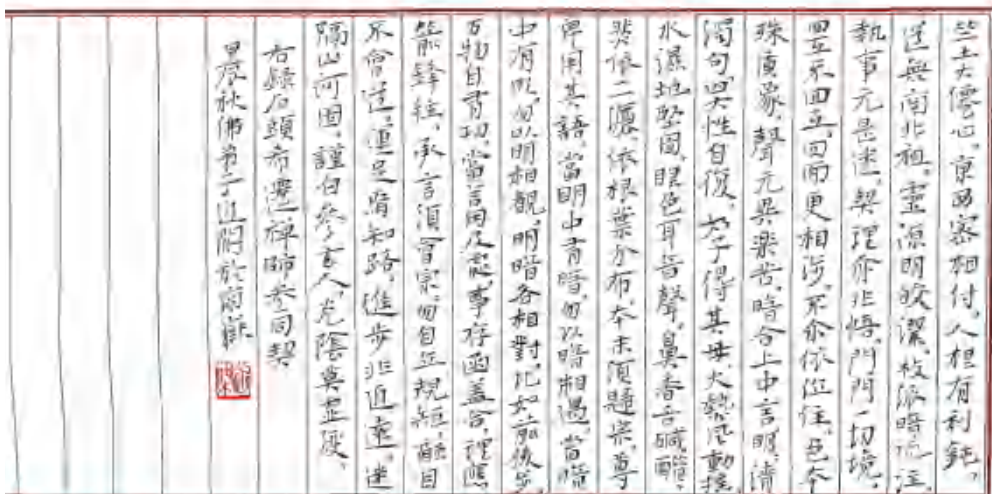 竺土大僊心，東西密相付，人根有利鈍，
道無南北祖，靈源明皎潔，枝派暗流注，
執事元是迷，契理亦非悟，門門一切境，
回互不回互，回而更相涉，不尒依位住，色本
殊質象，聲元異樂苦，暗合上中言，明，清
濁句，四大性自復，如子得其母，火熱風動搖，
水濕地堅固，眼色耳音聲，鼻香舌鹹醋，
然依二灋，依根葉分布，本末須歸宗，尊
卑用其語，當明中有暗，勿以暗相遇，當暗
中有明，勿以明相覩，明暗各相對，比如前後步，
万物自有功，當言用及處，事存函蓋合，理應
箭鋒拄，承言須會宗，勿自立規矩，觸目
不會道，運足焉知路，進步非近遠，迷
隔山河固，謹白參玄人，光陰莫虛度，
右錄石頭希遷禪師參同契
辰秋佛弟子於南嶽